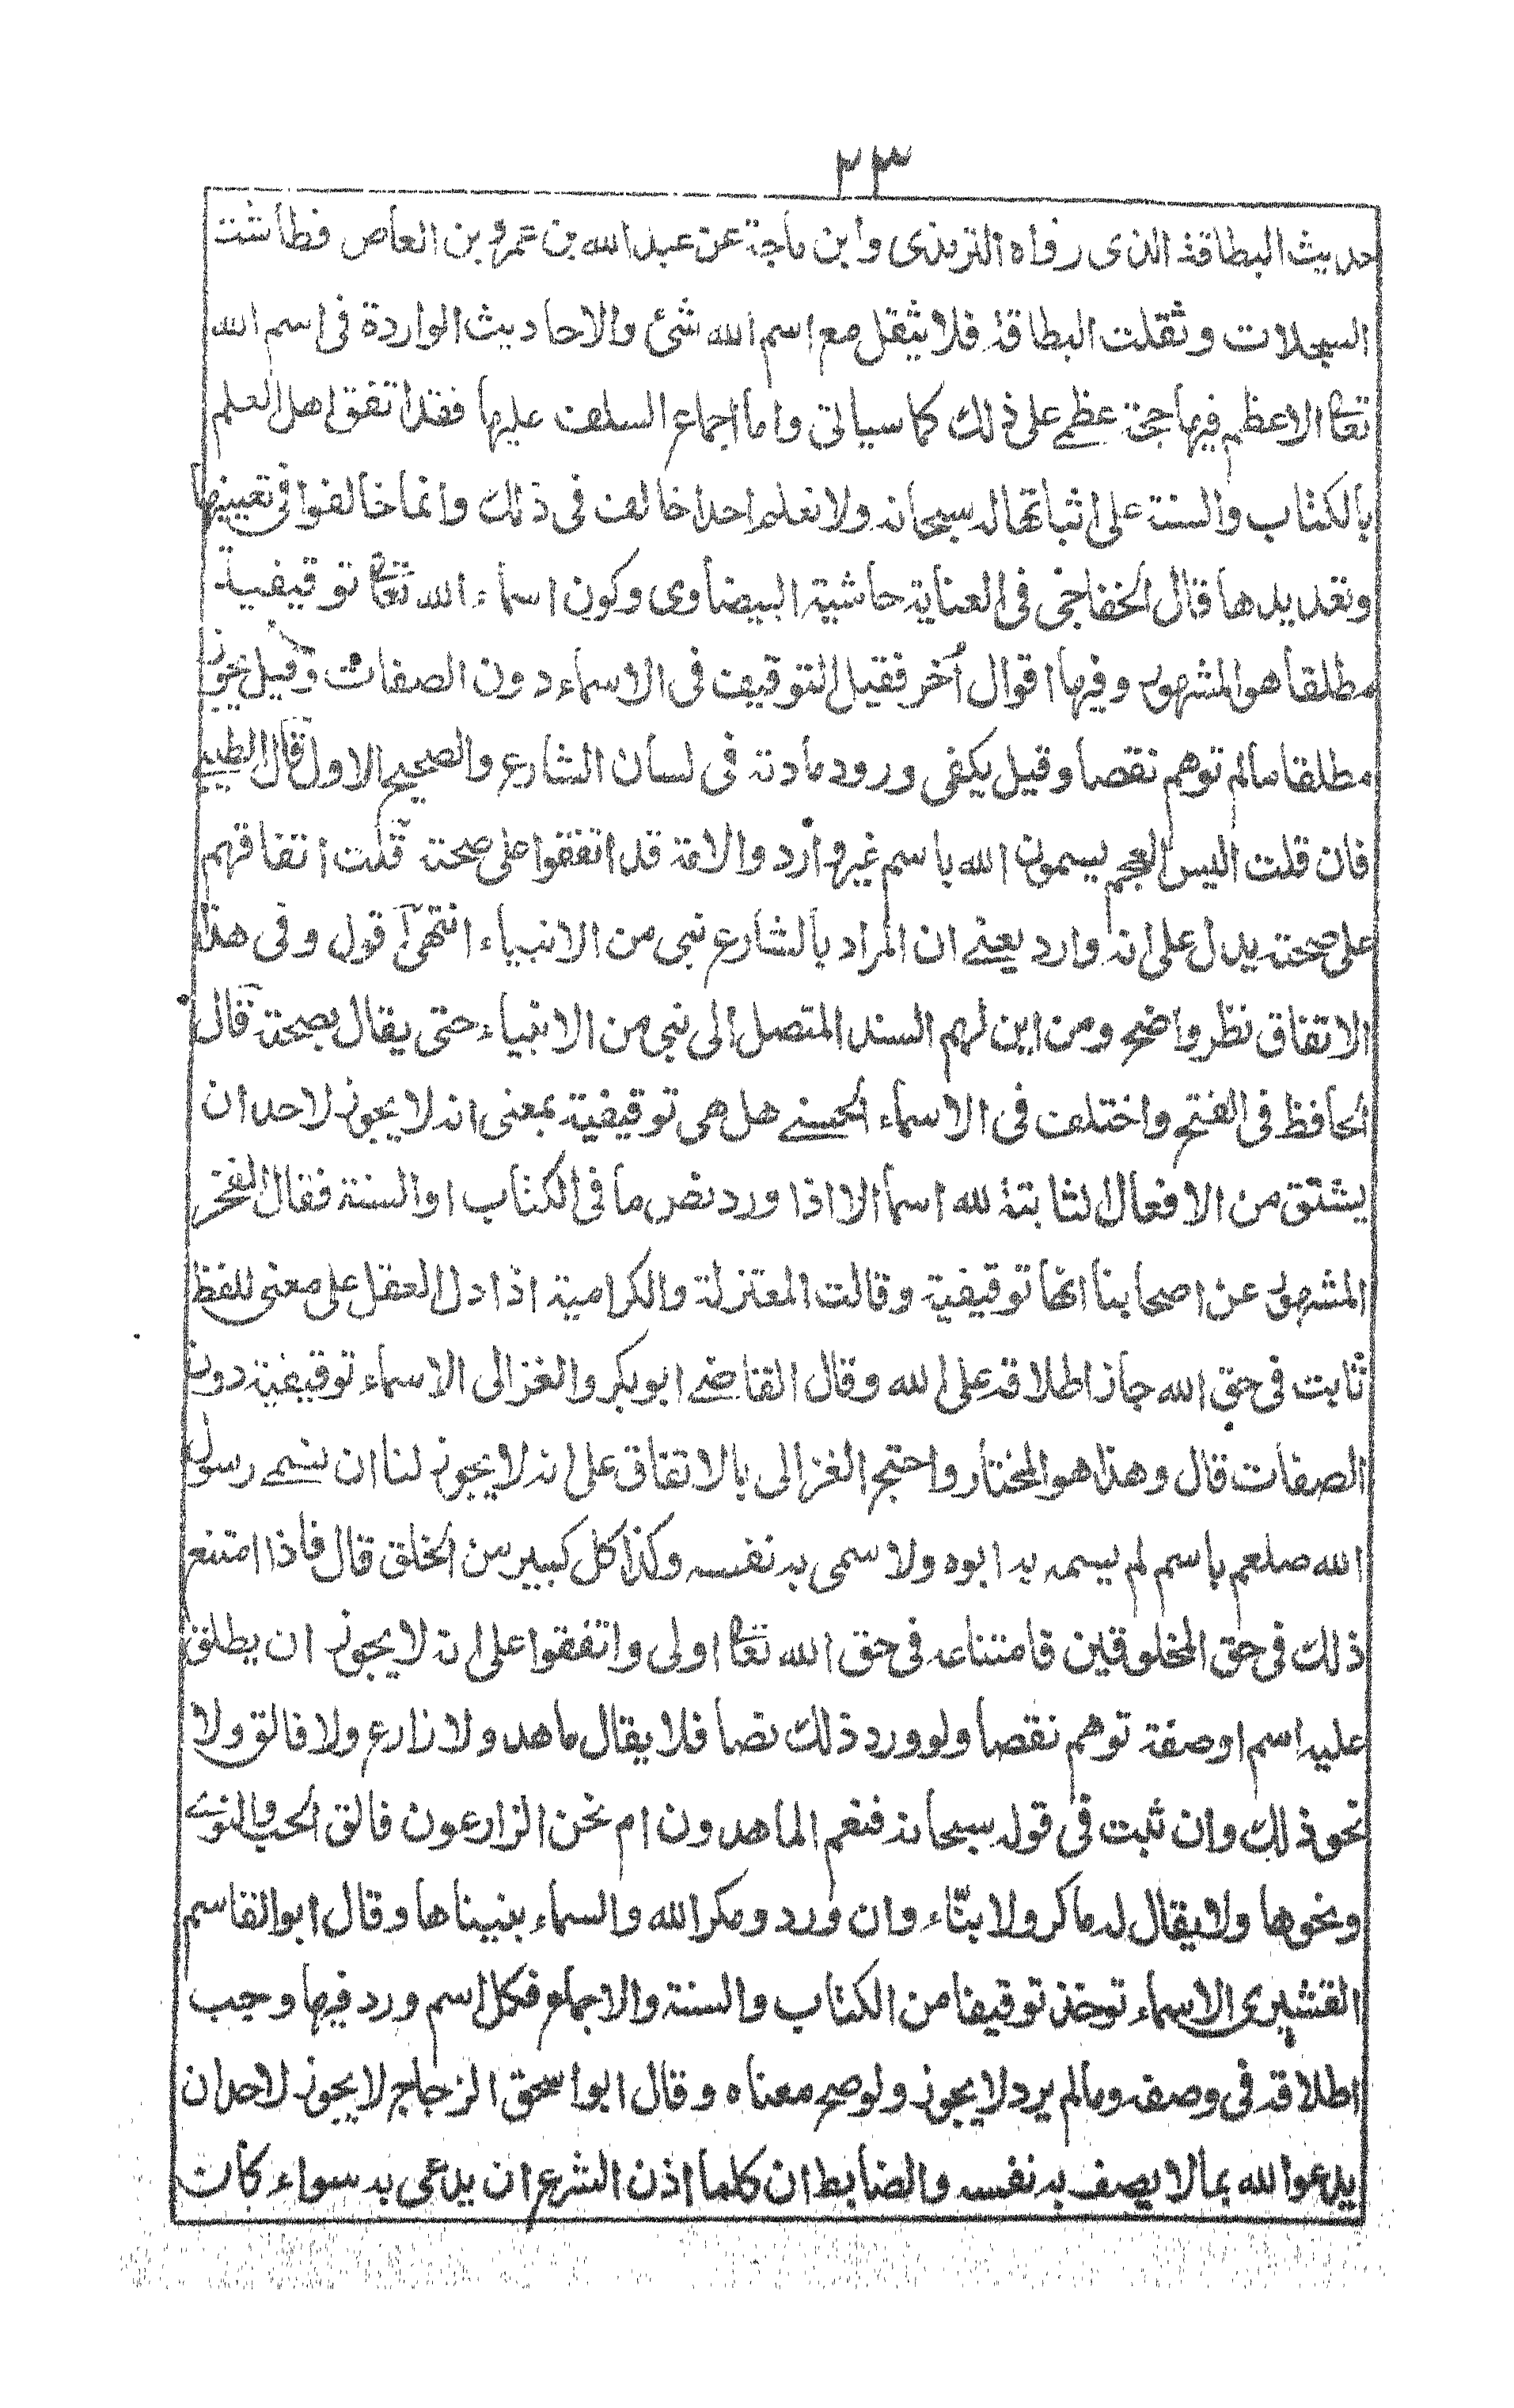 ٢٣
حديث البطاقة الذى رواه الترمذى وابن ماجة عن عبد الله بن عمرو بن العاص فطاشت
السجلات وثقلت البطاقة فلا يثقل مع اسم الله شئ والاحاديث الواردة فى اسم الله
تعا الاعظم فيها حجة عظمے على ذلك كما سياتى واما اجماع السلف عليها فقد اتفق اهل العلم
بالكتاب والسنة على اثباتها له سبحانه ولا نعلم احدا خالف فى ذلك وانما خالفوا فى تعيينها
وتعديدها قال الخفاجى فى العناية حاشية البيضاوى وكون اسماء الله تعا توقيفية
مطلقا هو المشهور وفيها اقوال أخر فقيل التوقيف فى الاسماء دون الصفات وقيل يجوز
مطلقا مالم توهم نقصا وقيل يكفى ورود مادته فى لسان الشارع والصحيح الاول قال الطيبے
فان قلت اليس العجم يسمون الله باسم غير وارد والامة قد اتفقوا على صحته قلت اتفاقهم
على صحته يدل على انه وارد يعنے ان المراد بالشارع نبى من الانبياء انتهى اقول وفى هذا
الاتفاق نظر واضح ومن اين لهم السند المتصل الى نبى من الانبياء حتى يقال بصحته قال
الحافظ فى الفتح واختلف فى الاسماء الحسنے هل هى توقيفية بمعنى انه لا يجوز لاحد ان
يشتق من الافعال الثابتة لله اسما الا اذا ورد نص ما فى الكتاب او السنة فقال الفخر
المشهور عن اصحابنا انها توقيفية وقالت المعتزلة والكرامية اذا دل العقل على معنى للفظ
ثابت فى حق الله جاز اطلاقه على الله وقال القاضے ابو بكر والغزالى الاسماء توقيفية دون
الصفات قال وهذا هو المختار واحتج الغزالى بالاتفاق على انه لا يجوز لنا ان نسمے رسول
الله صلعم باسم لم يسمه به ابوه ولا سمى به نفسه وكذا كل كبير من الخلق قال فاذا امتنع
ذلك فى حق المخلوقين فامتناعه فى حق الله تعا اولى واتفقوا على انه لا يجوز ان يطلق
عليه اسم او صفة توهم نقصا ولو ورد ذلك نصا فلا يقال ماهد ولا زارع ولا فالق ولا
نحو ذلك وان ثبت فى قوله سبحانه فنعم الماهدون ام نحن الزارعون فالق الحب والنوے
ونحوها ولا يقال له ماكر ولا بنّاء وان ورد ومكر الله والسماء بنيناها وقال ابو القاسم
القشيرى الاسماء توخذ توقيفا من الكتاب والسنة والاجماع فكل اسم ورد فيها وجب
اطلاقه فى وصفه ومالم يرد لا يجوز ولو صح معناه وقال ابو اسحق الزجاج لا يجوز لاحد ان
يدعو الله بما لا يصف به نفسه والضابط ان كلما اذن الشرع ان يدعى به سواء كان